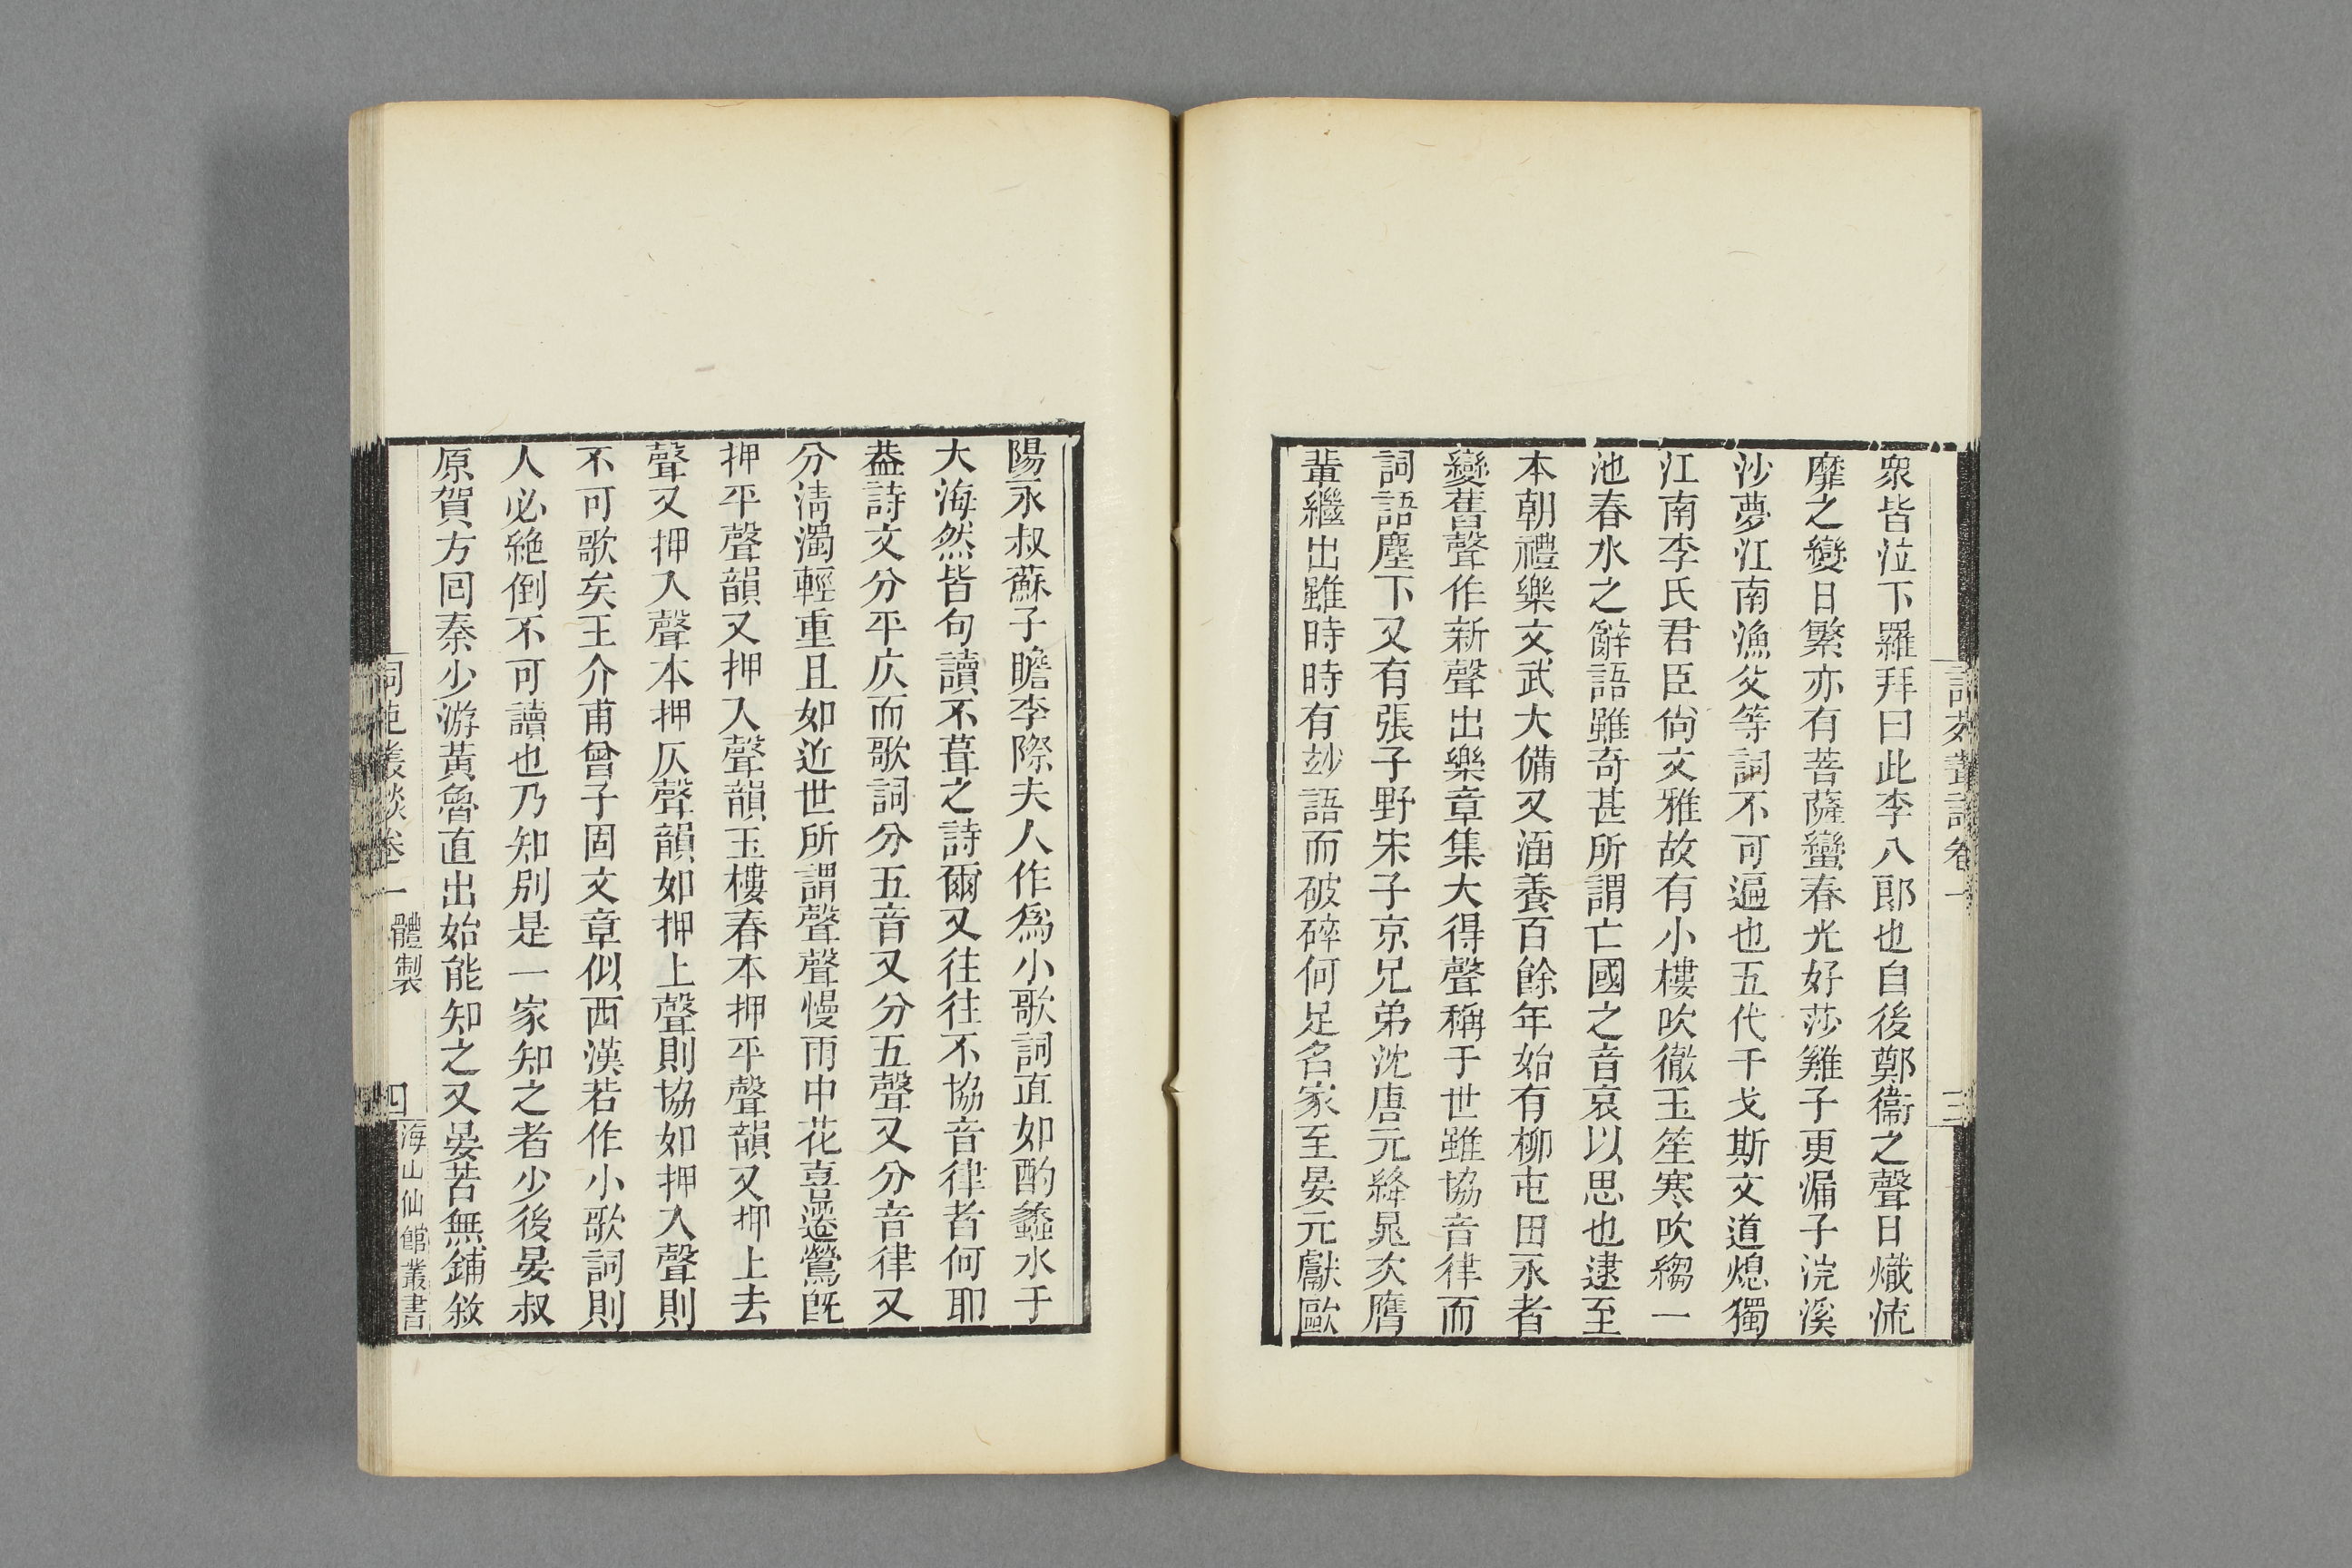 衆皆泣下羅拜曰此李八郎也自後鄭衞之聲日熾流
靡之變日繁亦有菩薩蠻春光好莎雞子更漏子浣溪
沙夢江南漁父等詞不可遍也五代干戈斯文道熄獨
江南李氏君臣尙文雅故有小樓吹徹玉笙寒吹縐一
池春水之辭語雖奇甚所謂亡國之音哀以思也逮至
本朝禮樂文武大備又涵養百餘年始有柳屯田永者
變舊聲作新聲出樂章集大得聲稱于世雖協音律而
詞語塵下又有張子野宋子京兄弟沈唐元絳晁次膺
輩繼出雖時時有玅語而破碎何足名家至晏元獻歐
陽永叔蘇子瞻李際夫人作爲小歌詞直如酌蠡水于
大海然皆句讀不葺之詩爾又往往不協音律者何耶
葢詩文分平仄而歌詞分五音又分五聲又分音律又
分淸濁輕重且如近世所謂聲聲慢雨中花喜遷鶯旣
押平聲韻又押入聲韻玉樓春本押平聲韻又押上去
聲又押入聲本押仄聲韻如押上聲則協如押入聲則
不可歌矣王介甫曾子固文章似西漢若作小歌詞則
人必絶倒不可讀也乃知别是一家知之者少後晏叔
原賀方回秦少游黃魯直出始能知之又晏苦無鋪敘
詞苑叢談卷一 體製 四 海山仙館叢書